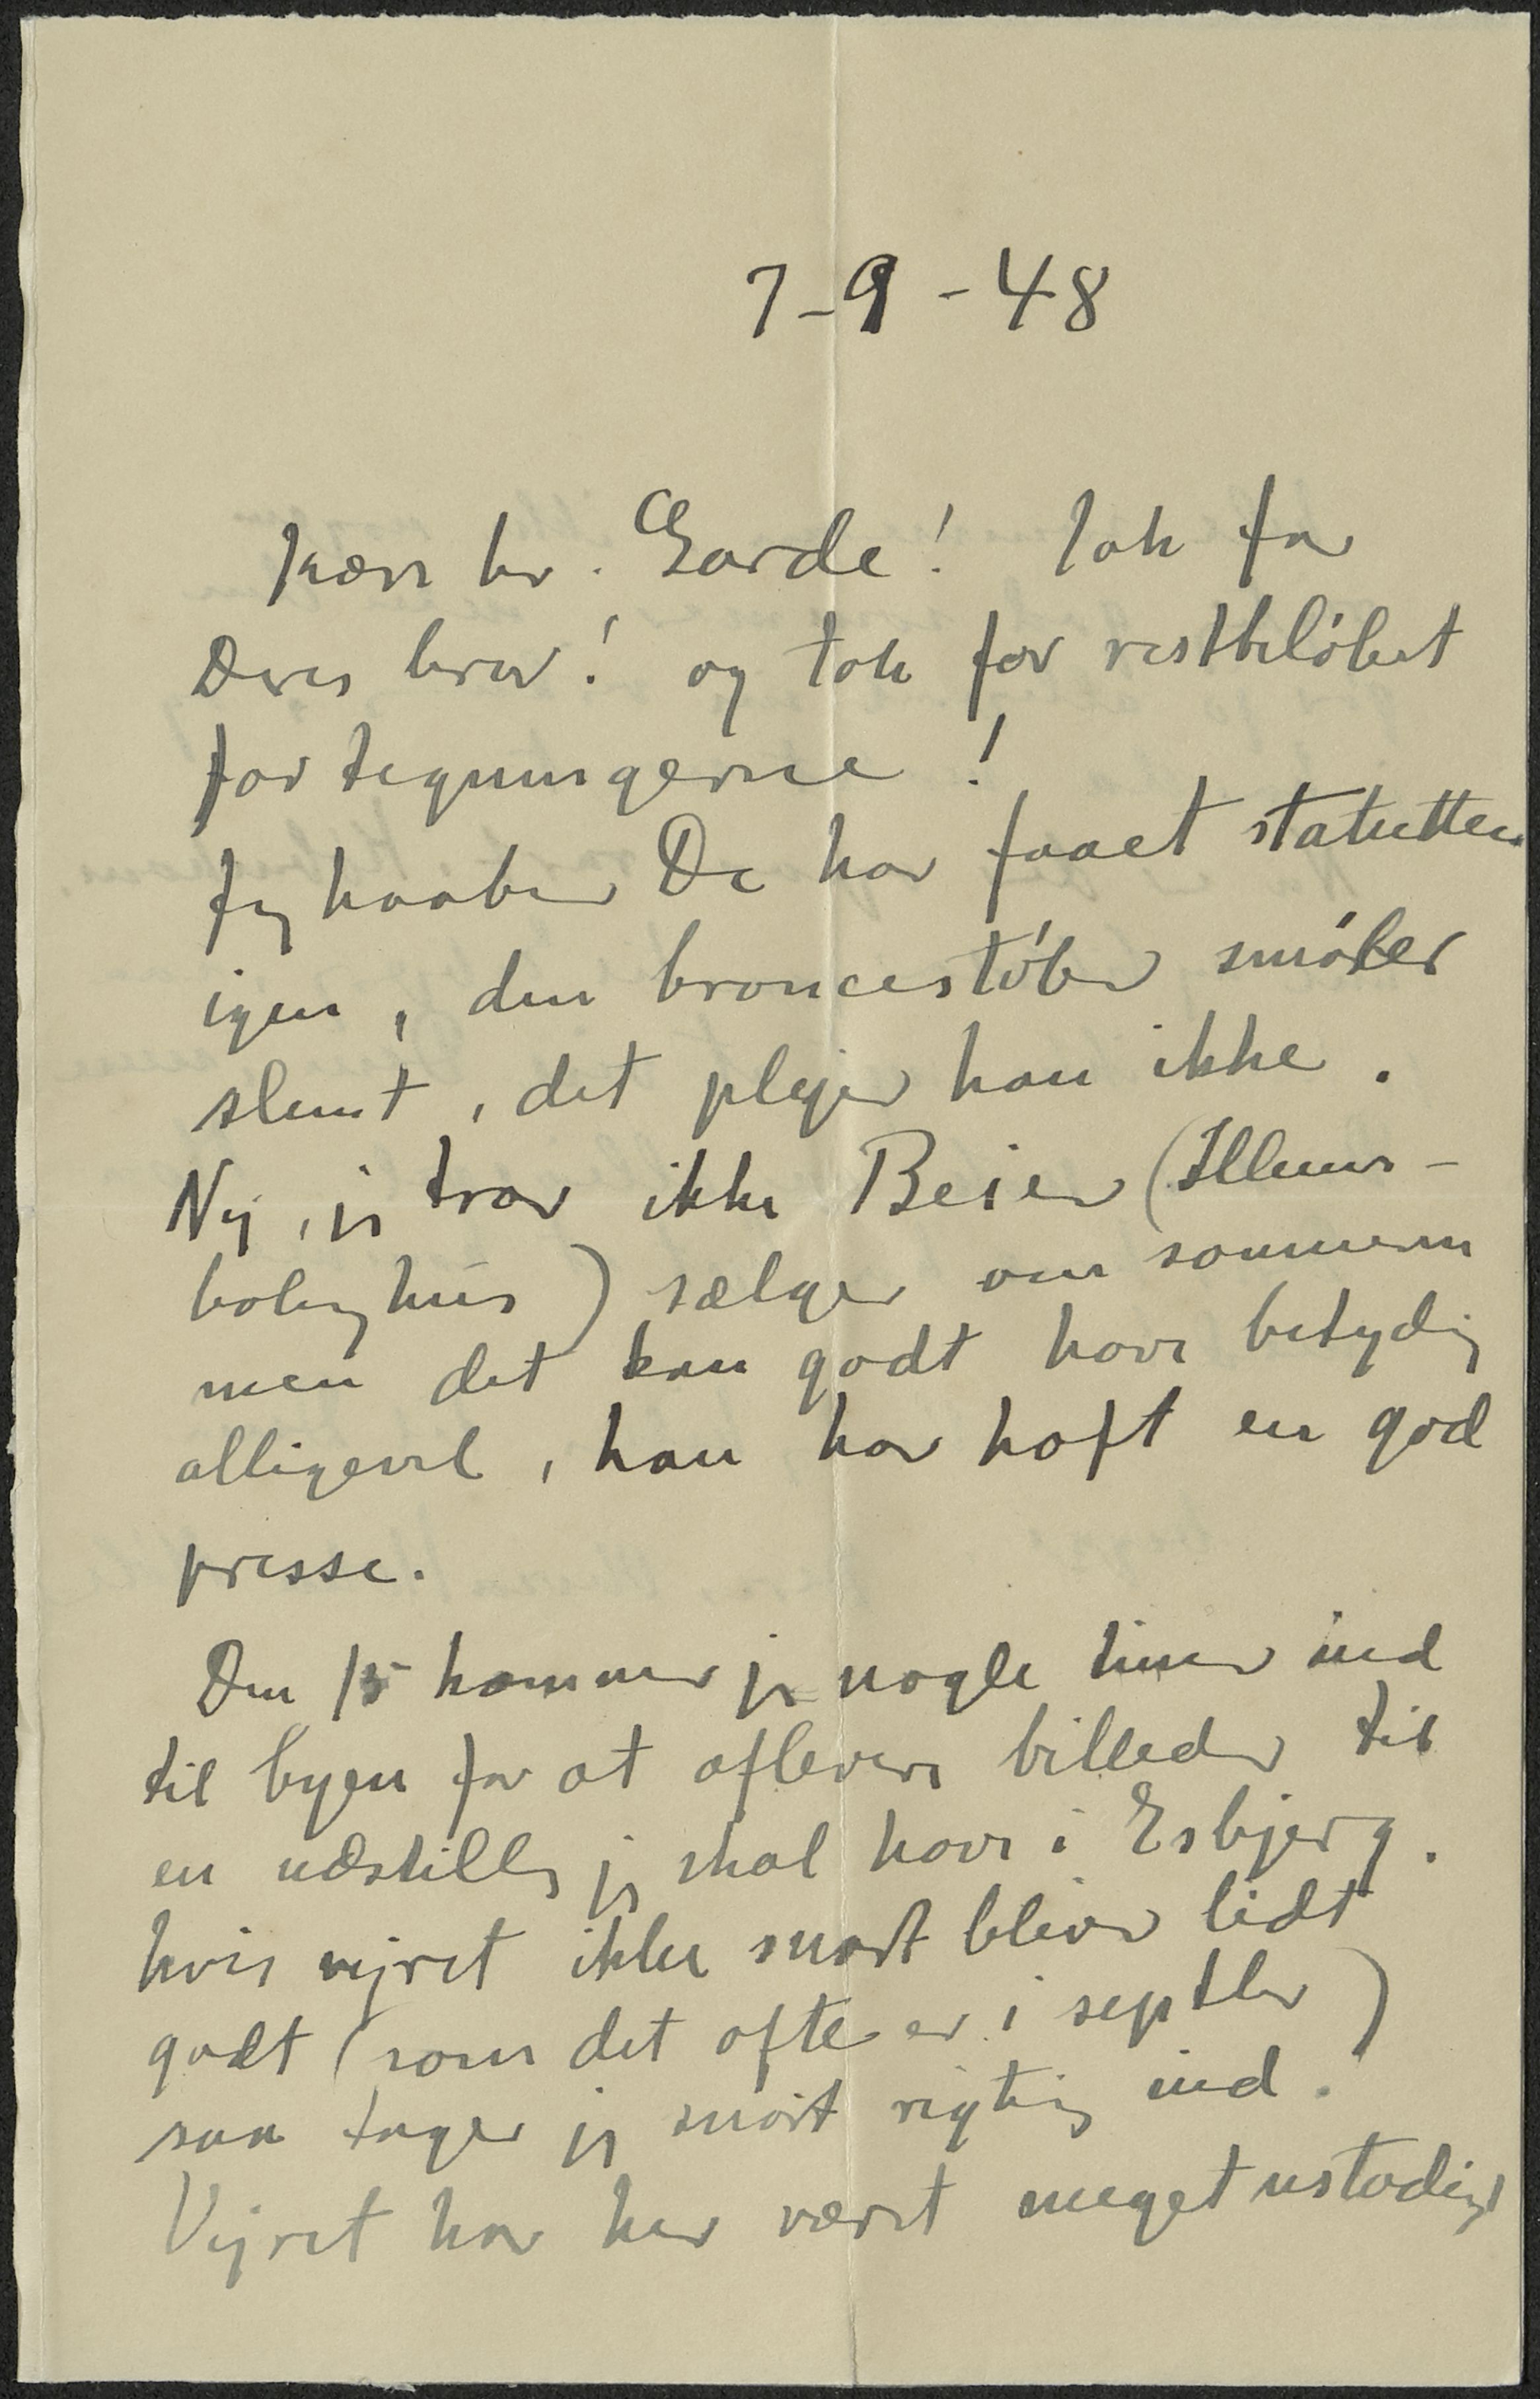 7-9-48
Kære hr. Garde! Tak for
Deres brev! og tak for restbeløbet
for tegningerne!
Jeg haaber De har faaet statuetten
igen, den broncestøber smøler
slemt, det plejer han ikke.
Nej, jeg tror ikke Beier (Illums-
bolighus) sælger om sommeren
men det kan godt have betydnig
alligevel, han har haft en god
presse.
Den 15 kommer jeg nogle timer ind
til byen for at aflevere billeder til
en udstillg jeg skal have i Esbjerg.
hvis vejret ikke snart bliver lidt
godt (som det ofte er i septbr)
saa tager jeg snart rigtig ind.
Vejret har her været meget ustadigt